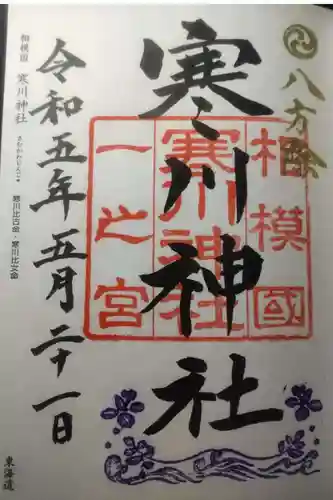 八方除
寒川神社
相模國
寒川神社
一之宮
令和五年五月二十一日
相模国 寒川神社
さむかわじんじゃ
寒川比古命・寒川比女命
東海道